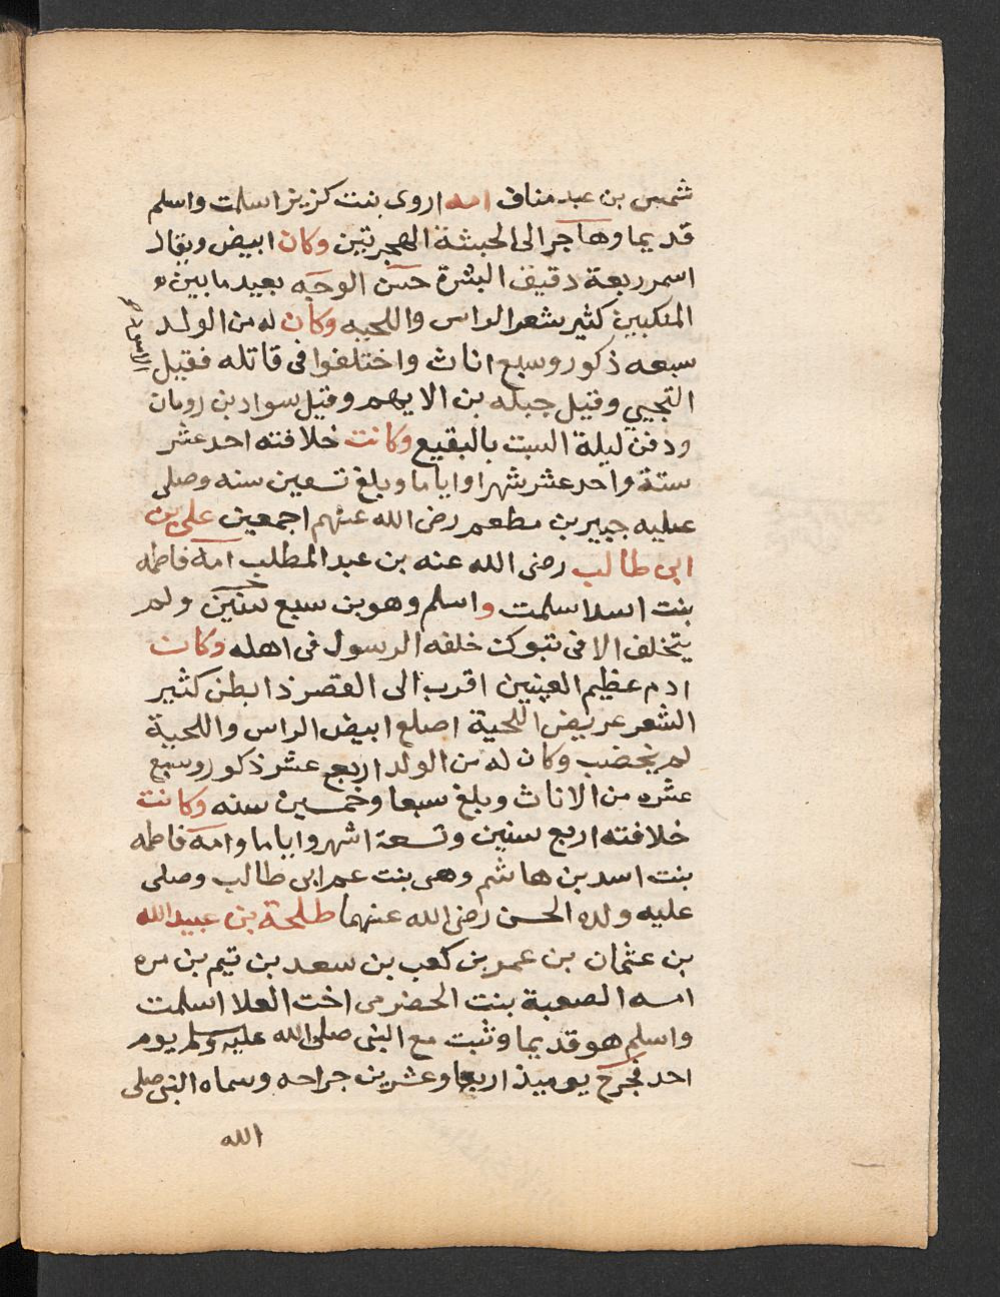 شمس بن عبد مناف امه اروى بنت كزيز اسلمت واسلم
قديما وهاجر الى الحبشة الهجرتين وكان ابيض ويقال
اسمر ربعة دقيق البشرة حسن الوجه بعيد ما بين
المنكبين كثير شعر الراس واللحيه وكان له من الولد
سبعه ذكور وسبع اناث واختلفوا فى قاتله فقيل
التجيبي وقيل جبله بن الايهم وقيل سواد بن رومان
ودفن ليلة السبت بالبقيع وكانت خلافته احد عشر
ستة واحد عشر شهرا واياما وبلغ تسعين سنه وصلى
عليه جبير بن مطعم رضى الله عنهم اجمعين على بن
ابى طالب رضى الله عنه بن عبد المطلب امه فاطمه
بنت اسد اسلمت واسلم وهو بن سبع سنين ولم
يتخلف الا فى تبوك خلفه الرسول فى اهله وكان
ادم عظيم العينين اقرب الى القصر ذا بطن كثير
الشعر عريض اللحية اصلع ابيض الراس واللحية
لم يخضب وكان له من الولد اربع عشر ذكور وسبع
عشره من الاناث وبلغ سبعا وخمسين سنه وكانت
خلافته اربع سنين وتسعة اشهر واياما وامه فاطمه
بنت اسد بن هاشم وهى بنت عم ابى طالب وصلى
عليه ولده الحسن رضى الله عنهما طلحة بن عبيد الله
بن عثمان بن عمر بن كعب بن سعد بن تيم بن مره
امه الصعبة بنت الحضرمى اخت العلا اسلمت
واسلم هو قديما وثبت مع النبى صلى الله عليه وسلم يوم
احد فجرح يوميذ اربعا وعشرين جراحه وسماه النبى صلى
الله